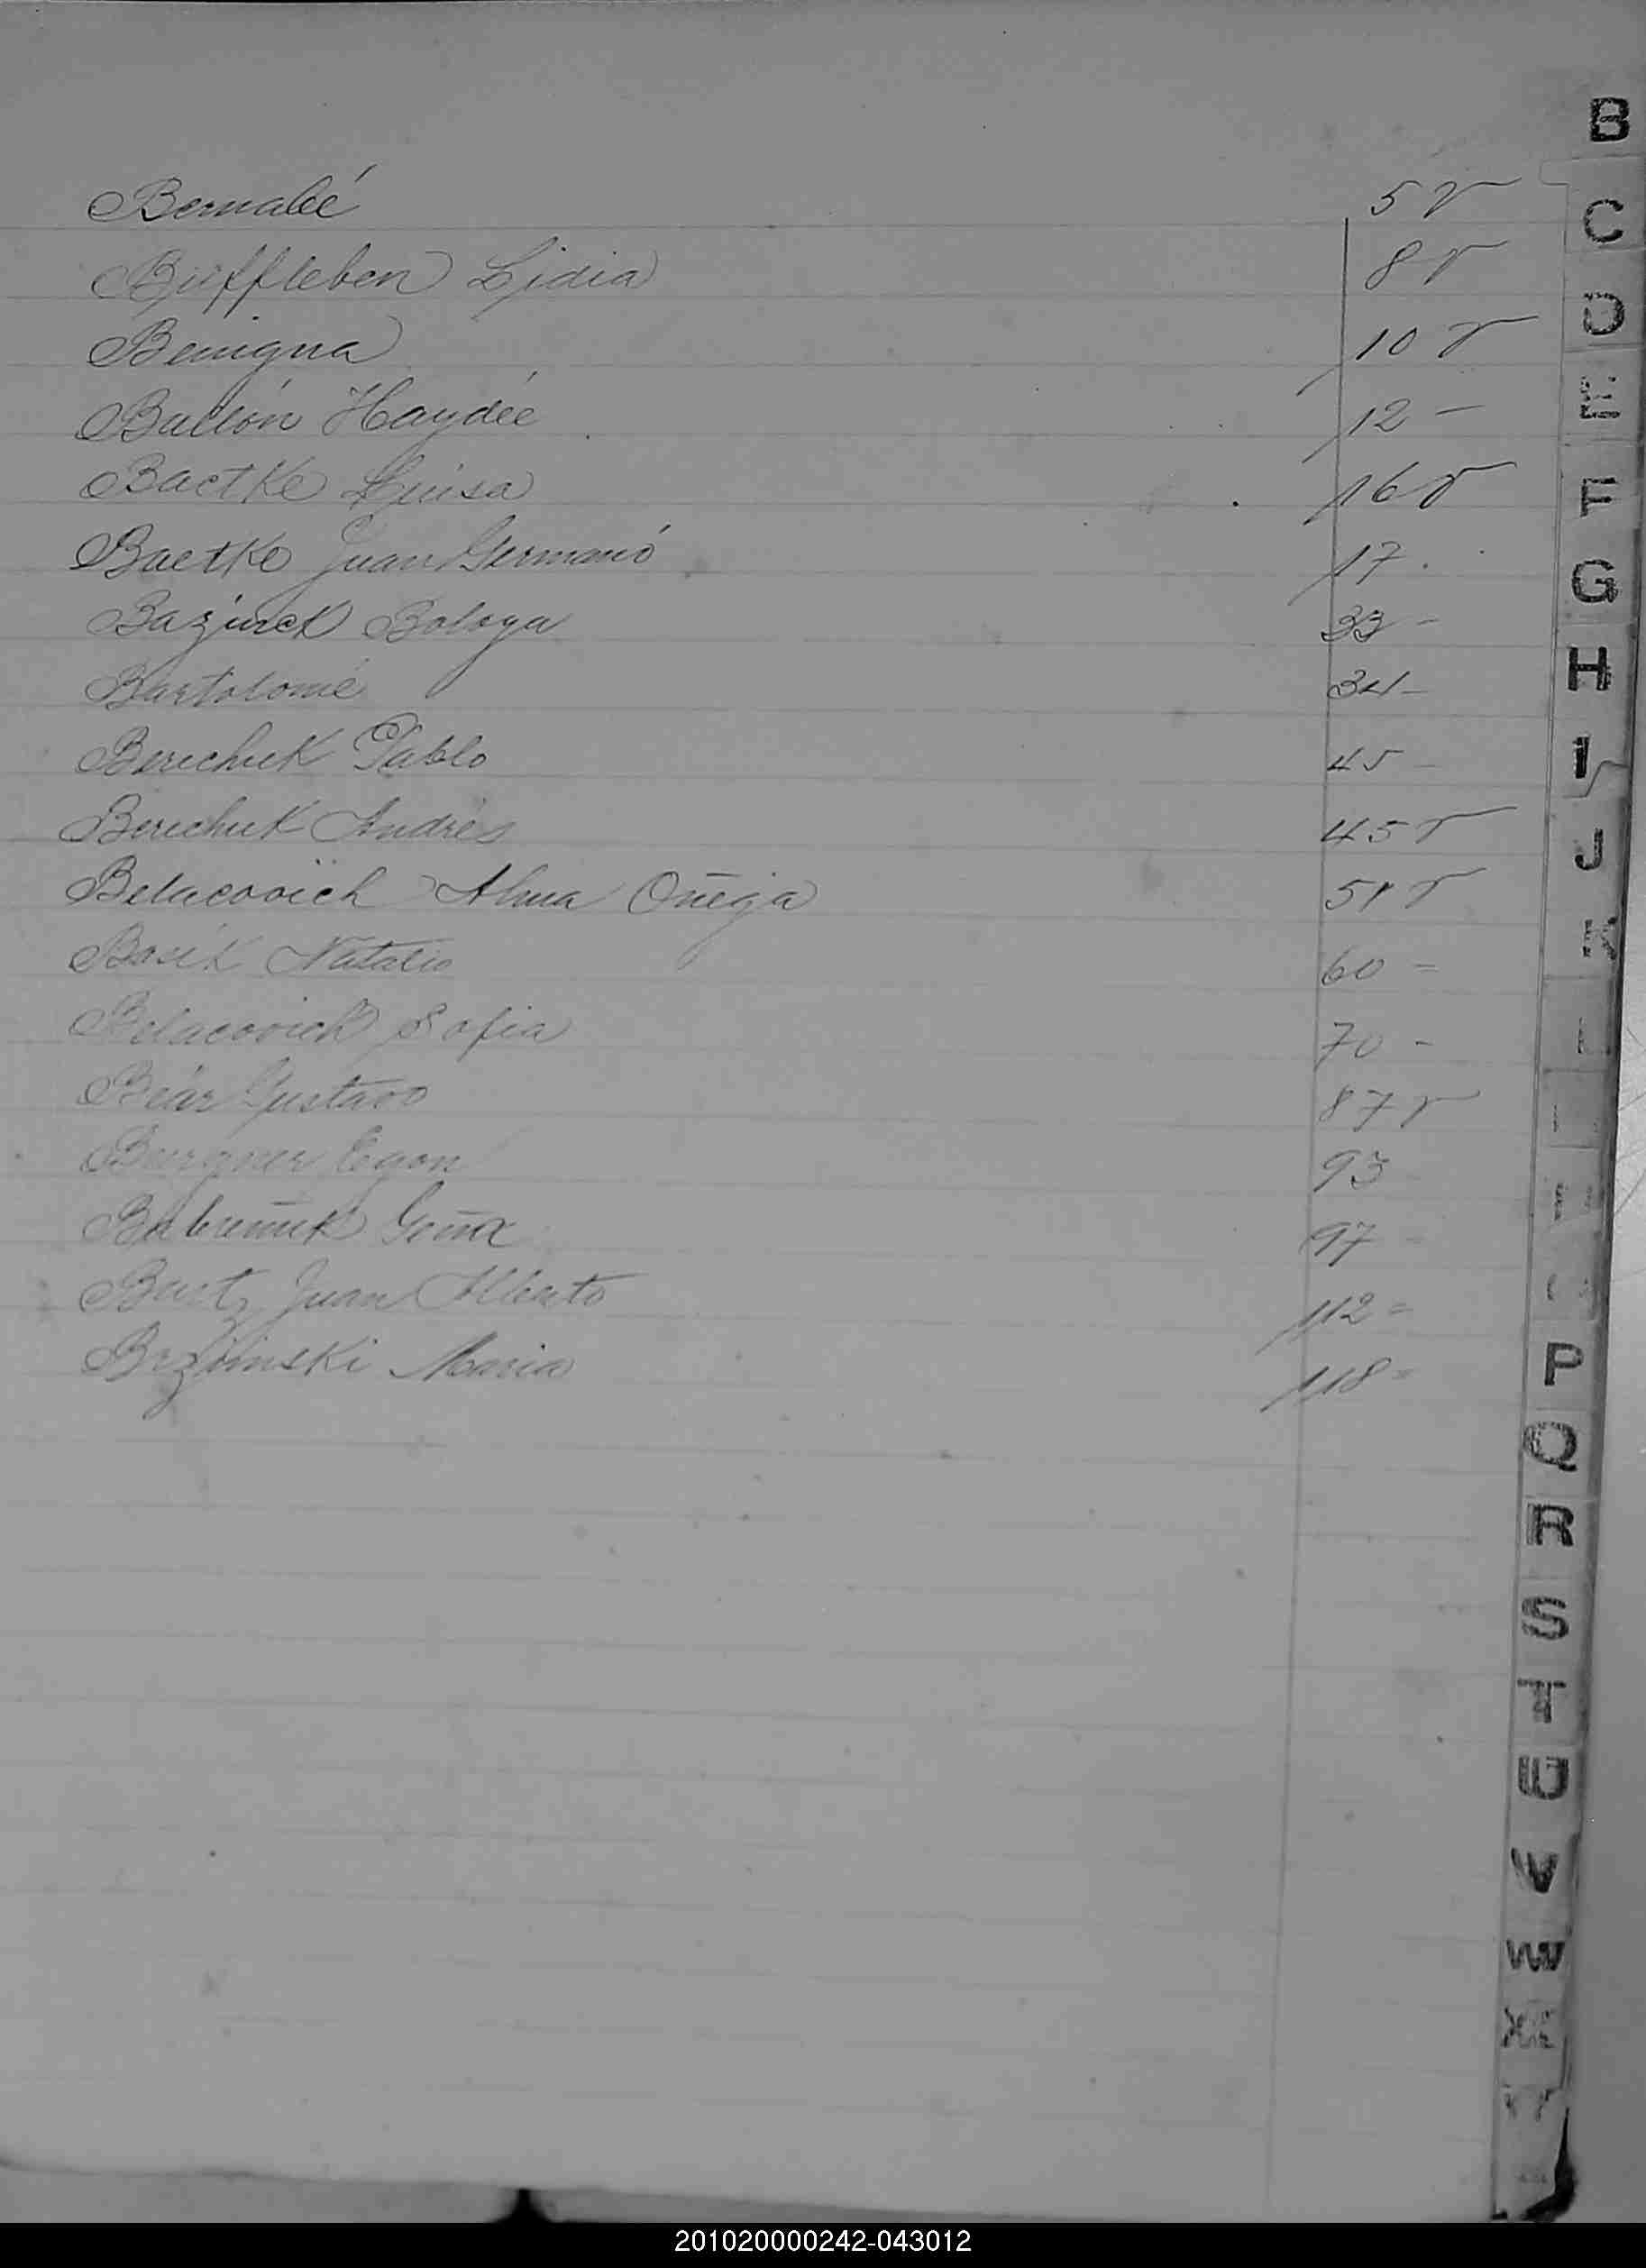 Bernabé 5 v
Büffleben Lidia 8 v
Benigna 10 v
Bullón Haydée 12 -
Baetke Luisa 16 v
Baetke Juan Germanó 17 .
Baziuck Bologa 33 -
Bartolomé 34 -
Beruchuk Pablo 45 -
Beruchuk Andrés 45 v
Belacovich Alma 51 v
Natalio 60 -
Belacovich Sofia 70 -
Beár Gustavo 87 v
Burgner Egon 93
97 -
Bartz Juan Alberto 112 =
Brzoinski Maria 118 =
B
C
D
E
F
G
H
I
J
K
P
Q
R
S
T
U
V
W
X
Y
201020000242-043012